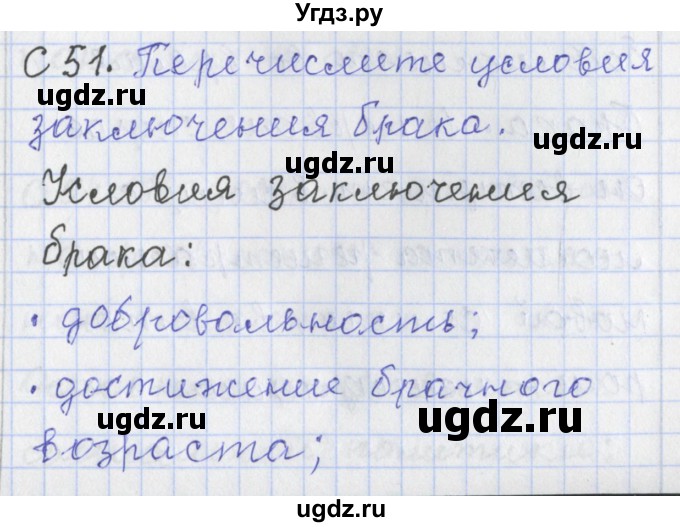 Угдз.ру
С 51. Перечислите условия
ugdz.ru ugdz.ru
заключения брака.
ugdz.ru
Условия заключения
брака:
ugdz.ru ugdz.ru
• добровольность;
• достижение брачного
ugdz.ru ugdz.ru
возраста;
ugdz.ru